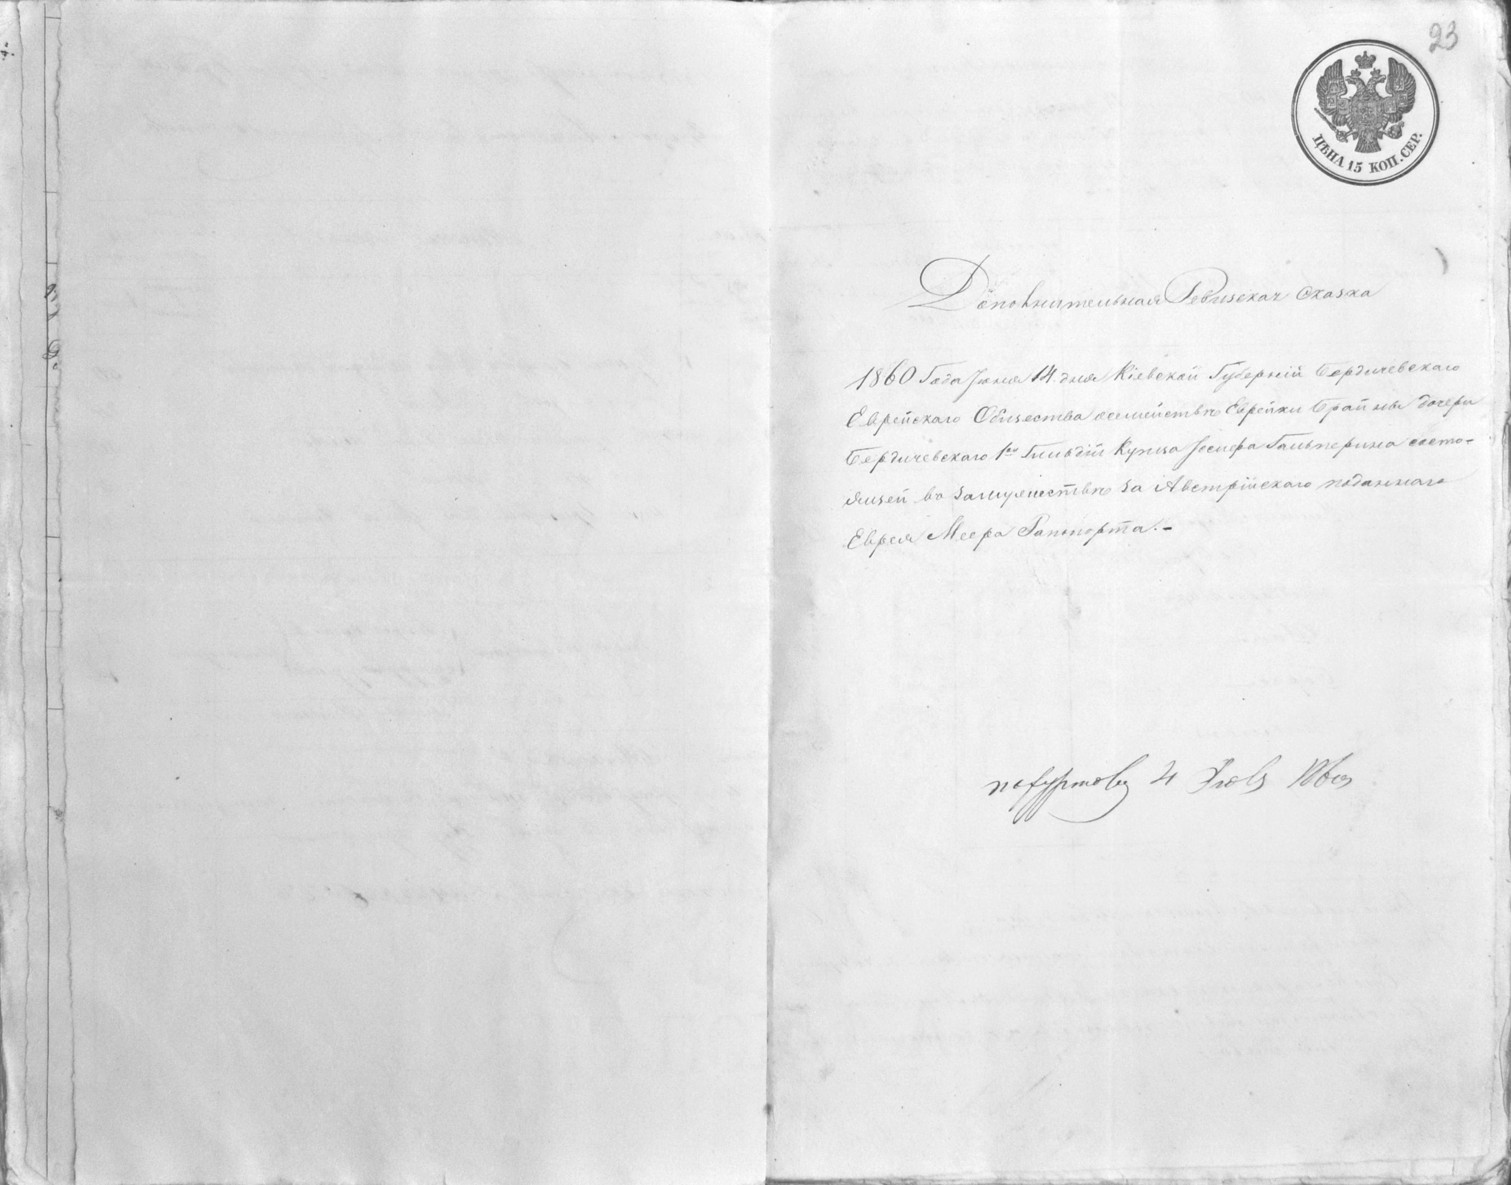 23
ЦѢНА 15 КОП. СЕР.
Дополнительная Ревизская сказка
1860 Года Іюня 14 дня Кіевской Губерніи Бердичевскаго
Еврейскаго Общества о семействѣ Еврейки Брайны дочери
Бердичевскаго 1го Гильдіи Купца Іосифа Гальперина состо-
ящей въ замужествѣ за Австрійскаго подданнаго
Еврея Меера Рапопорта.-